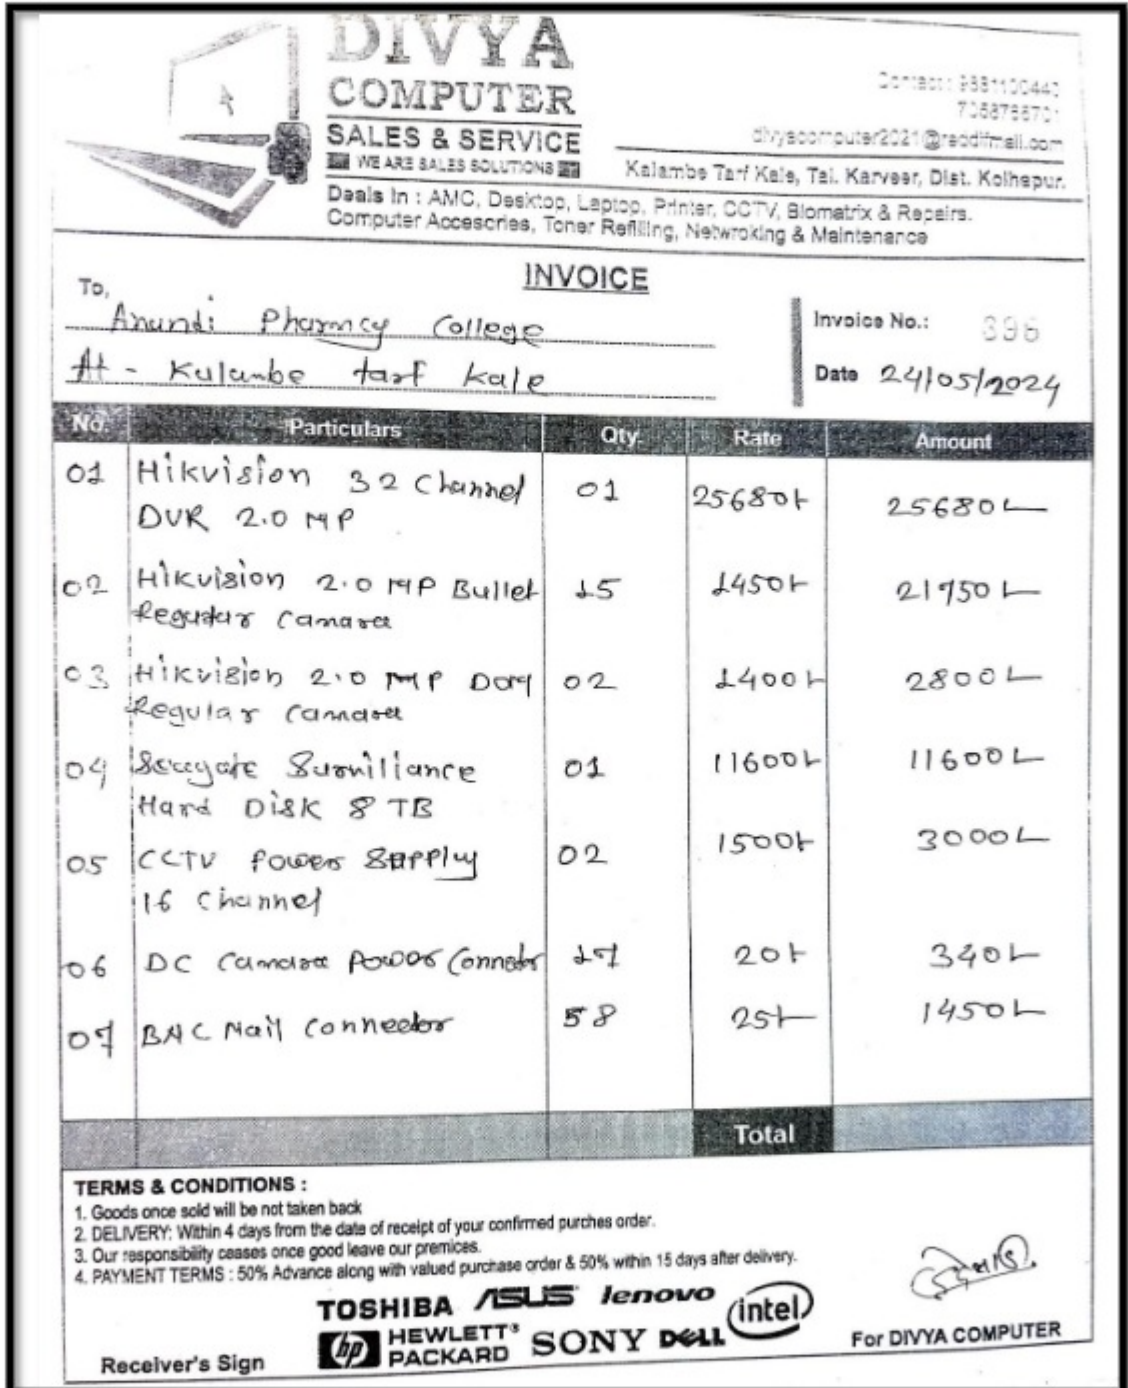 DIVYA
COMPUTER
SALES & SERVICE
WE ARE SALES SOLUTIONS
Contact : 9881100440
7058788701
divyacomputer2021@rediffmail.com
Kalambe Tarf Kale, Tal. Karveer, Dist. Kolhapur.
Deals In : AMC, Desktop, Laptop, Printer, CCTV, Biomatrix & Repairs.
Computer Accesories, Toner Refilling, Netwroking & Maintenance
INVOICE
To,
Anundi Pharmcy College
At - Kulambe tarf Kale
Invoice No.: 396
Date 24/05/2024
No. Particulars Qty Rate Amount
01 Hikvision 32 Channel 01 25680/- 25680/-
DVR 2.0 MP
02 Hikvision 2.0 MP Bullet 15 1450/- 21750/-
Regular Camara
03 Hikvision 2.0 MP Dom 02 1400/- 2800/-
Regular Camara
04 Seagate Survilliance 01 11600/- 11600/-
Hard Disk 8 TB
05 CCTV Power Supply 02 1500/- 3000/-
16 Channel
06 DC Camara Power Connector 17 20/- 340/-
07 BNC Mail Connector 58 25/- 1450/-
Total
TERMS & CONDITIONS :
1. Goods once sold will be not taken back
2. DELIVERY: Within 4 days from the date of receipt of your confirmed purches order.
3. Our responsibility ceases once good leave our premices.
4. PAYMENT TERMS : 50% Advance along with valued purchase order & 50% within 15 days after delivery.
TOSHIBA ASUS lenovo intel
hp HEWLETT PACKARD SONY DELL
Receiver's Sign
For DIVYA COMPUTER